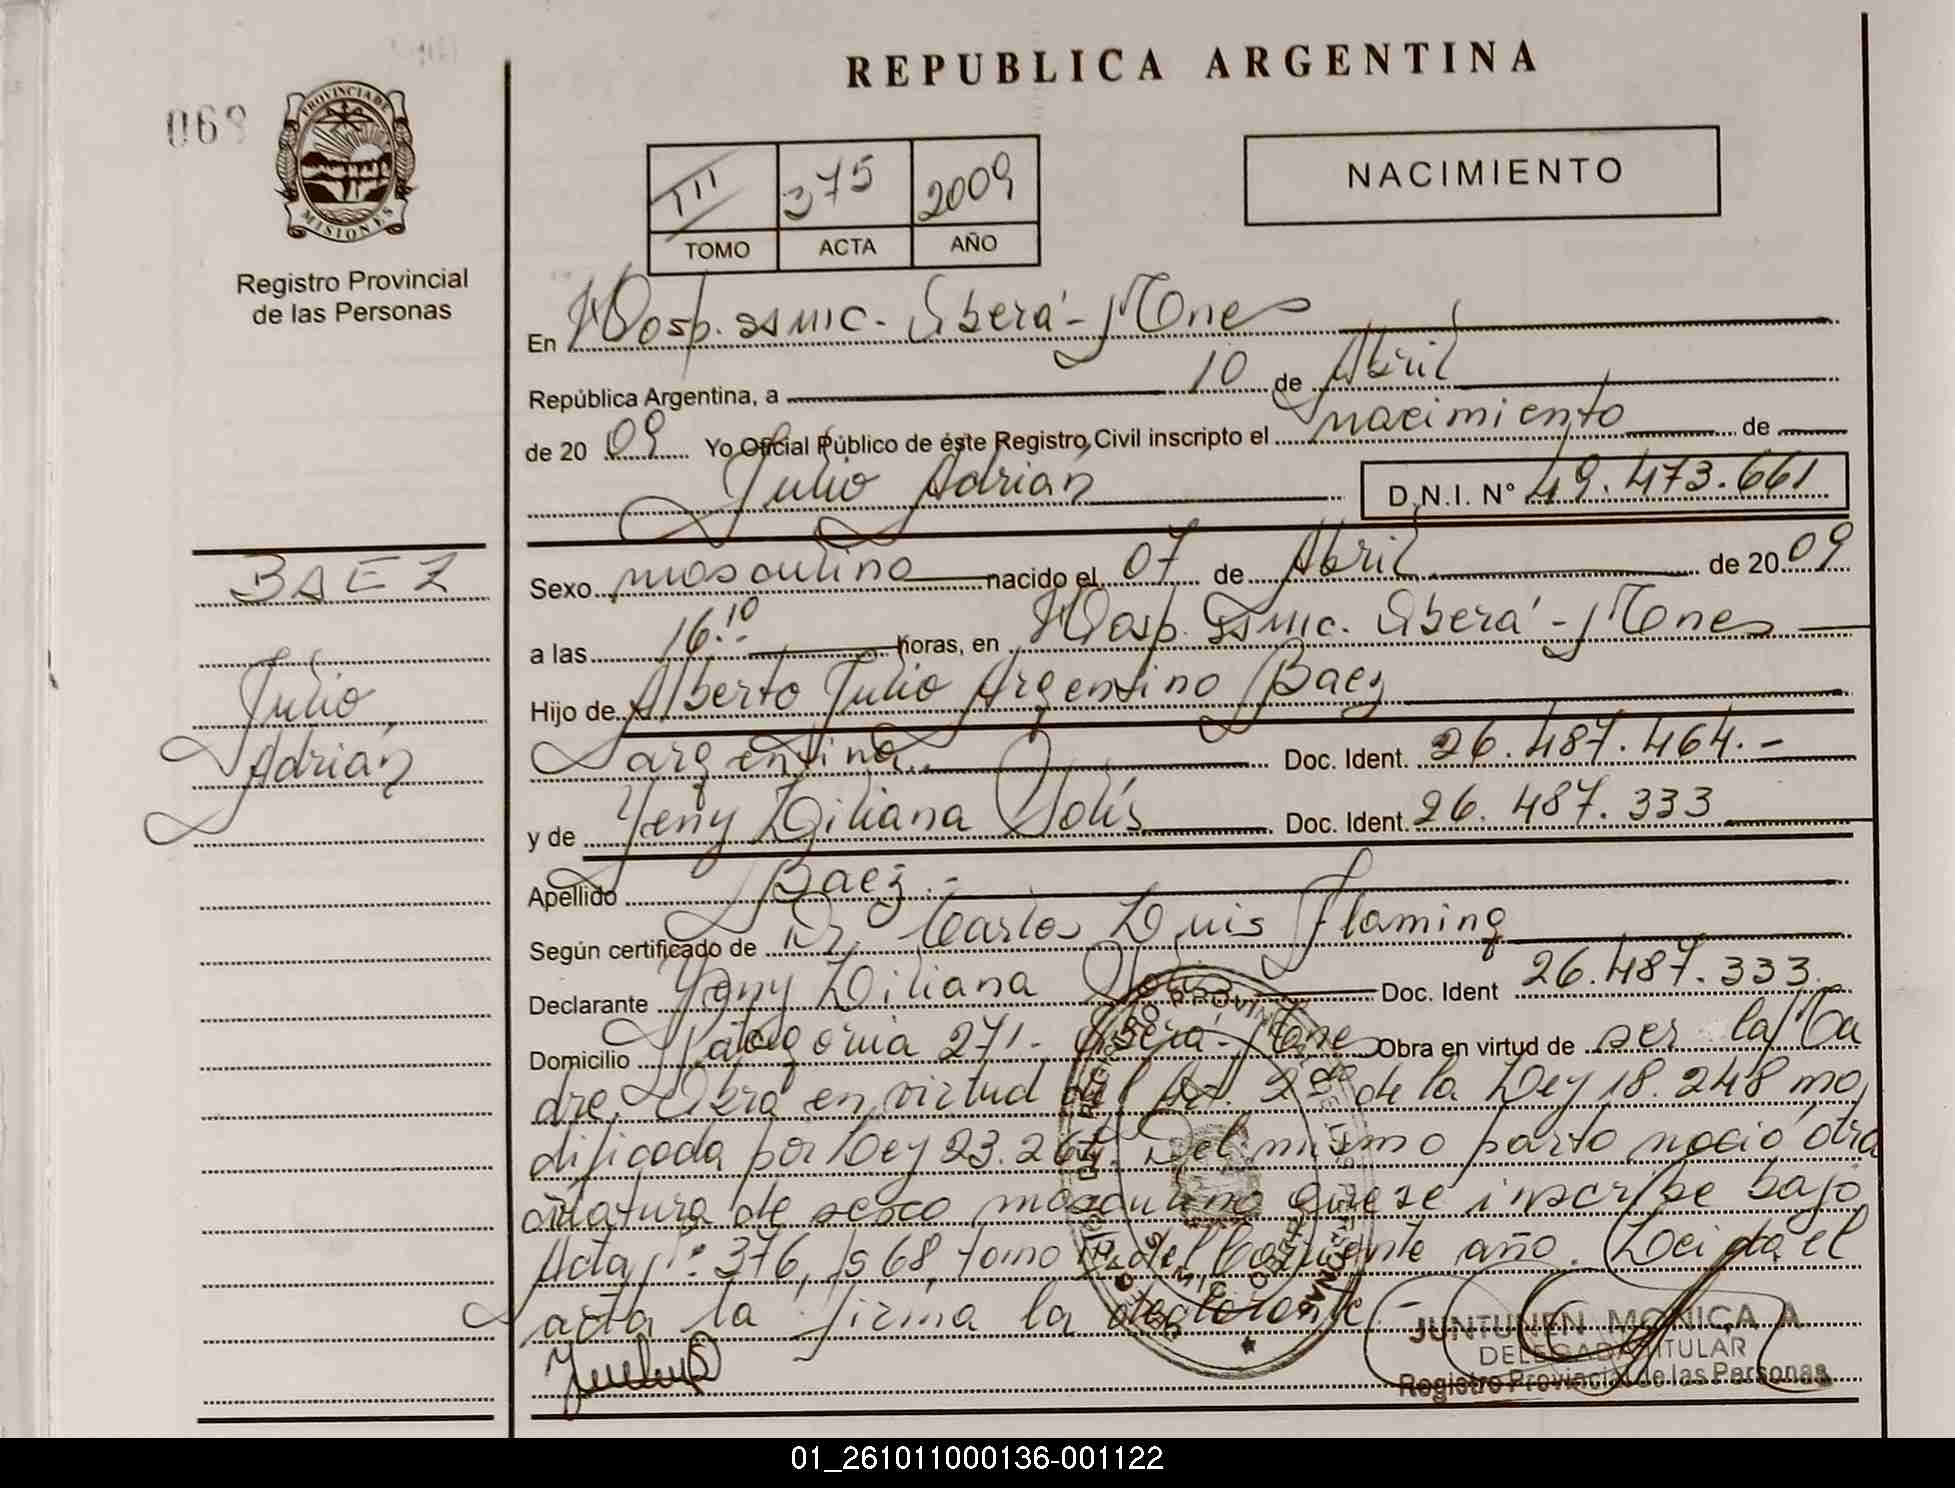 REPUBLICA ARGENTINA
PROVINCIA DE
MISIONES
Registro Provincial
de las Personas
III 375 2009
TOMO ACTA AÑO
NACIMIENTO
En Hosp. Oberá - Mnes
República Argentina, a 10 de Abril
de 20 09 Yo Oficial Público de éste Registro Civil inscripto el nacimiento de
Julio Adrián D.N.I. N° 49.473.661
BAEZ
Julio
Adrián
Sexo masculino nacido el 07 de Abril de 20 09
a las 16.10 horas, en Hosp. Oberá - Mnes
Hijo de Alberto Julio Argentino Baez
argentina Doc. Ident. 26.487.464.-
y de Yeny Liliana Solís Doc. Ident. 26.487.333
Apellido Baez.-
Según certificado de Dr. Carlos Luis Flaming
Declarante Yeny Liliana Solís Doc. Ident 26.487.333
Domicilio Patagonia 271 - Oberá - Mnes Obra en virtud de ser la Ma
dre. Obra en virtud del Art. 2° de la Ley 18.248 mo
dificada por Ley 23.264. Del mismo parto nació otra
criatura de sexo masculino que se inscribe bajo
Acta n° 376, fs 68, tomo del Corriente año. Leida el
acta la firma la declarante
JUNTUNEN MONICA A
DELEGADA TITULAR
Registro Provincial de las Personas
01_261011000136-001122